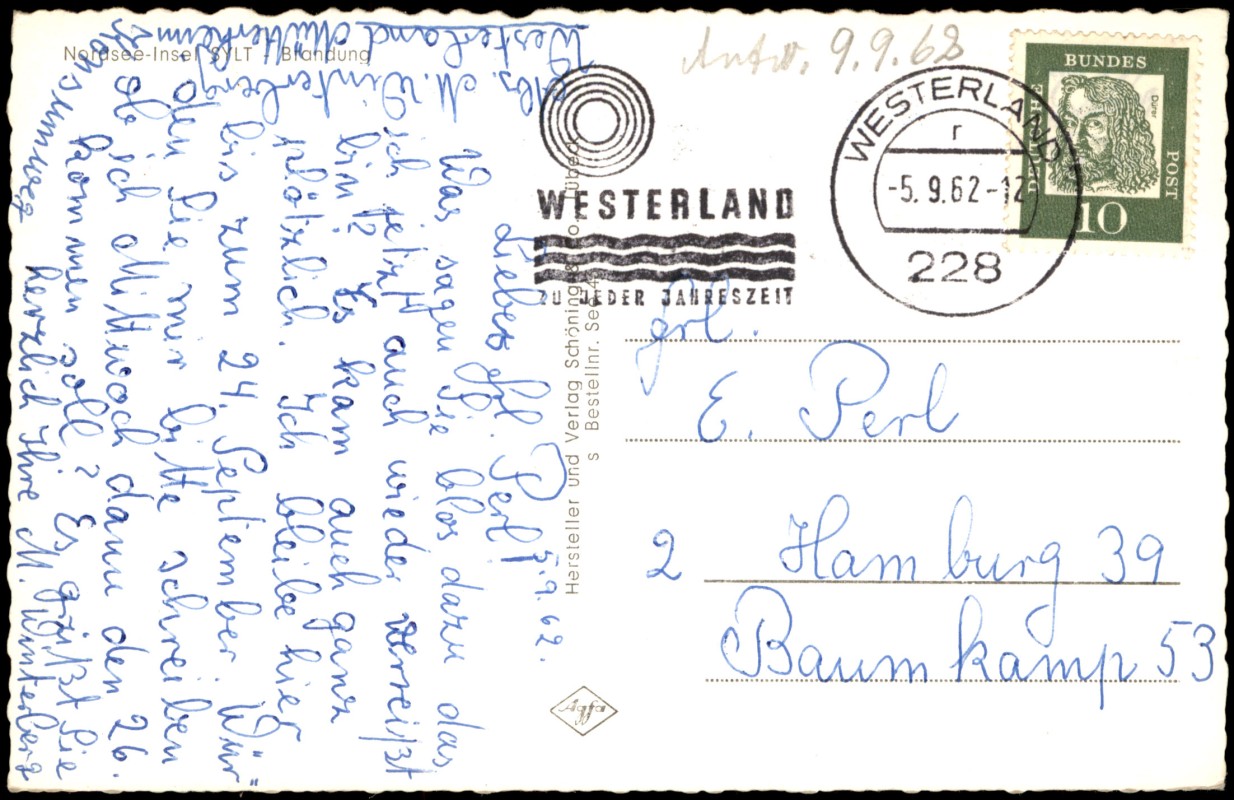 Nordsee-Insel SYLT - Brandung
Abs. M. Winterberg
Westerland Mütterheim
5.9.62.
Liebes Frl. Perl!
Was sagen Sie blos dazu das
ich jetzt auch wieder verreißt
bin? Es kam auch ganz
plötzlich. Ich bleibe hier
bis zum 24. September. Wür"
den Sie mir bitte schreiben
ob ich Mittwoch dann den 26.
kommen soll? Es grüßt Sie
herzlich Ihre M. Winterberg
Hersteller und Verlag Schöning & Co., Lübeck
s Bestellnr. See
Agfa
Antw. 9.9.62
WESTERLAND
ZU JEDER JAHRESZEIT
WESTERLAND
r
-5.9.62-12
228
DEUTSCHE
BUNDES
POST
Dürer
10
Frl.
E. Perl
2 Hamburg 39
Baumkamp 53